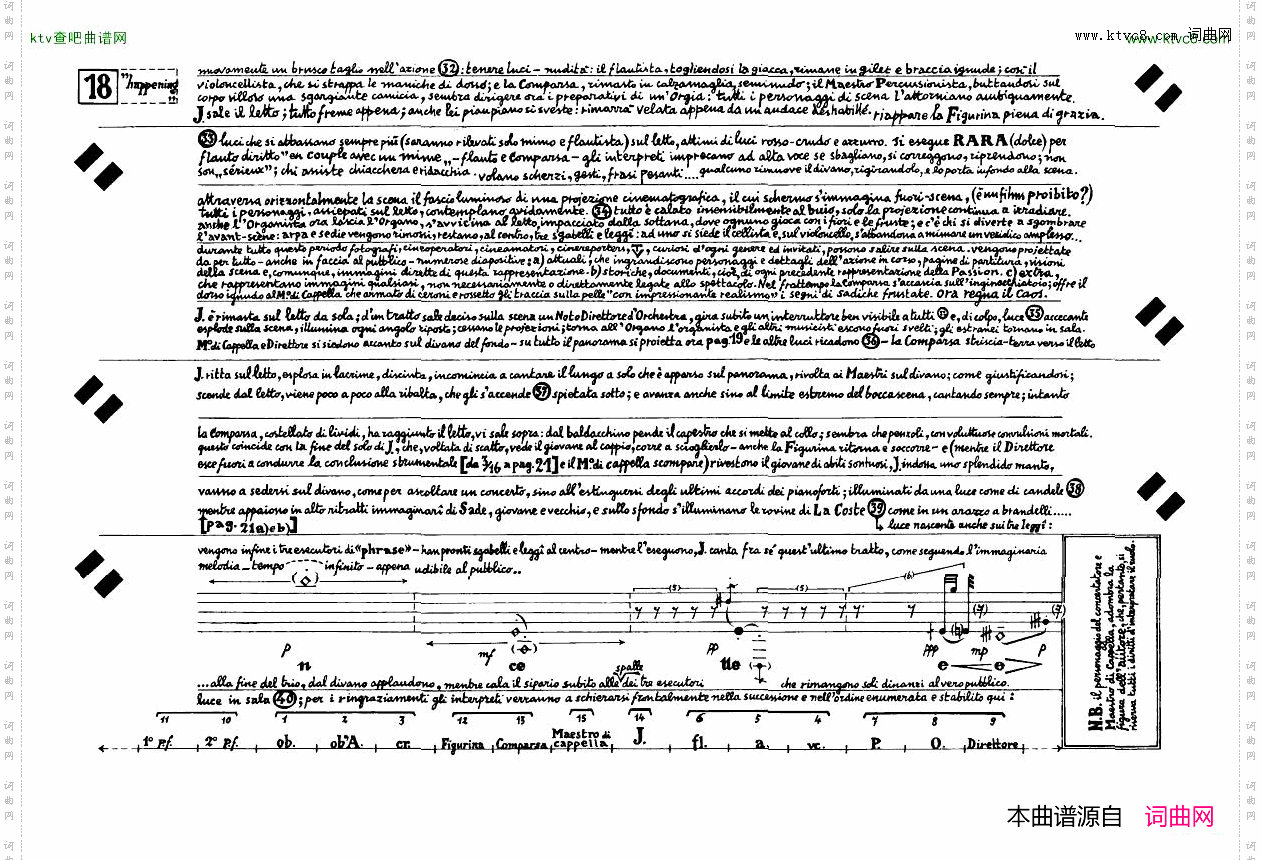 ktv查吧曲谱网
www.ktvc8.com 词曲网
18
"happening"
nuovamente un brusco taglio nell'azione (32): tenere luci - nudità: il flautista, togliendosi la giacca, rimane in gilet e braccia ignude; così il
violoncellista, che si strappa le maniche di dosso; e la Comparsa, rimasto in calzamaglia, seminudo; il Maestro Percussionista, buttandosi sul
corpo villoso una sgargiante camicia, sembra dirigere ora i preparativi di un'Orgia: tutti i personaggi di scena l'attorniano ambiguamente.
J. sale il letto; tutto freme appena; anche lei pian piano si sveste: rimarrà velata appena da un audace deshabillé. riappare la Figurina piena di grazia.
(33) luci che si abbassano sempre più (saranno rilevati solo mimo e flautista) sul letto, attimi di luci rosso-crudo e azzurro. Si esegue RARA (dolce) per
flauto diritto "en couple avec un mime" - flauto e Comparsa - gli interpreti imprecano ad alta voce se sbagliano, si correggono, riprendono; non
son "sérieux"; chi assiste chiacchera e ridacchia. volano scherzi, gesti, frasi pesanti.... qualcuno rimuove il divano, rigirandolo, e lo porta in fondo alla scena.
attraversa orizzontalmente la scena il fascio luminoso di una projezione cinematografica, il cui schermo s'immagina fuori-scena, (è un film proibito?)
tutti i personaggi, assiepati sul letto, contemplano avidamente. (34) tutto è calato insensibilmente al buio, solo la projezione continua a irradiare,
anche l'Organista ora lascia l'Organo, s'avvicina al letto, impacciato dalla sottana, dove ognuno gioca con i fiori e le fruste; e c'è chi si diverte a sgombrare
l'avant-scène: arpa e sedie vengono rimossi; restano, al centro, tre sgabelli e leggî: ad uno si siede il cellista e, sul violoncello, s'abbandona a mimare un veridico amplesso...
durante tutto questo periodo fotografi, cineoperatori, cineamatori, cinereporters, TV, curiosi d'ogni genere ed invitati, possono salire sulla scena. vengono proiettate
da per tutto - anche in faccia al pubblico - numerose diapositive: a) attuali, che ingrandiscono personaggi e dettagli dell'azione in corso, pagine di partitura, visioni
della scena e, comunque, immagini dirette di questa rappresentazione. b) storiche, documenti, cioè, di ogni precedente rappresentazione della Passion. c) extra,
che rappresentano immagini qualsiasi, non necessariamente o direttamente legate allo spettacolo. Nel frattempo la Comparsa s'accascia sull'inginocchiatoio; offre il
dorso ignudo al Mº di Cappella che armato di ceroni e rossetto gli traccia sulla pelle "con impressionante realismo" i segni di sadiche frustate. Ora regna il Caos.
J. è rimasta sul letto da sola; d'un tratto sale deciso sulla scena un Noto Direttore d'Orchestra, gira subito un interruttore ben visibile a tutti e, di colpo, luce (35) accecante
esplode sulla scena, illumina ogni angolo riposto; cessano le projezioni; torna all'Organo l'organista e gli altri musicisti escono fuori svelti; gli estranei tornano in sala.
Mº di Cappella e Direttore si siedono accanto sul divano del fondo - su tutto il panorama si proietta ora pag. 19 e le altre luci ricadono (36) - la Comparsa striscia-terra verso il letto
J. ritta sul letto, esplosa in lacrime, discinta, incomincia a cantare il lungo a solo che è apparso sul panorama, rivolta ai Maestri sul divano; come giustificandosi;
scende dal letto, viene poco a poco alla ribalta, che gli s'accende (37) spietata sotto; e avanza anche sino al limite estremo del boccascena, cantando sempre; intanto
la Comparsa, costellato di lividi, ha raggiunto il letto, vi sale sopra: dal baldacchino pende il capestro che si mette al collo; sembra che penzoli, con voluttuose convulsioni mortali.
questo coincide con la fine del solo di J., che, voltata di scatto, vede il giovane al cappio, corre a scioglierlo - anche la Figurina ritorna e soccorre - e (mentre il Direttore
esce fuori a condurre la conclusione strumentale [da 3/16 a pag. 21] e il Mº di cappella scompare) rivestono il giovane di abiti sontuosi, J. indossa uno splendido manto,
vanno a sedersi sul divano, come per ascoltare un concerto, sino all'estinguersi degli ultimi accordi dei pianoforti; illuminati da una luce come di candele (38)
mentre appaiono in alto ritratti immaginarî di Sade, giovane e vecchio, e sullo sfondo s'illuminano le rovine di La Coste (39) come in un arazzo a brandelli.....
[pag. 21 a) e b)]
luce nascente anche sui tre leggî:
vengono infine i tre esecutori di «phrase» - han pronti sgabelli e leggî al centro - mentre l'eseguono, J. canta fra sé quest'ultimo tratto, come seguendo l'immaginaria
melodia - tempo infinito - appena udibile al pubblico..
(5) (5) (6)
(7) (7)
p mf pp ppp mp p
n ce tte e e
spalle
...alla fine del trio, dal divano applaudono, mentre cala il sipario subito alle dei tre esecutori che rimangono soli dinanzi al vero pubblico.
luce in sala (40); per i ringraziamenti gli interpreti verranno a schierarsi frontalmente nella successione e nell'ordine enumerata e stabilito qui:
11 10 1 2 3 12 13 15 14 6 5 4 7 8 9
1º Pf. 2º Pf. ob. ob'A. cr. Figurina Comparsa Maestro di cappella J. fl. a. vc. P. O. Direttore
N.B. il personaggio del concertatore e
Maestro di Cappella adombra la
figura dell'autore, che, pertanto, si
riserva tutti i diritti d'interpretare il ruolo.
本曲谱源自 词曲网